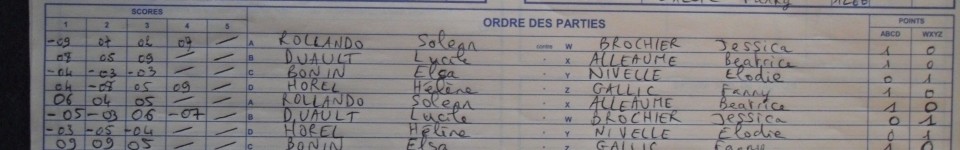 SCORES ORDRE DES PARTIES POINTS
1 2 3 4 5 ABCD WXYZ
-09 07 06 07 / A ROLLANDO Solenn contre W BROCHIER Jessica 1 0
08 05 09 / / B DUAULT Lucile X ALLEAUME Béatrice 1 0
-04 -03 -03 / / C BONIN Elsa Y NIVELLE Elodie 0 1
04 -08 05 09 / D HOREL Hélène Z GALLIC Fanny 1 0
06 04 05 / / A ROLLANDO Solenn X ALLEAUME Béatrice 1 0
-05 -09 06 -07 / B DUAULT Lucile W BROCHIER Jessica 0 1
-03 -05 -04 / / D HOREL Hélène Y NIVELLE Elodie 0 1
09 09 05 / / C BONIN Elsa Z GALLIC Fanny